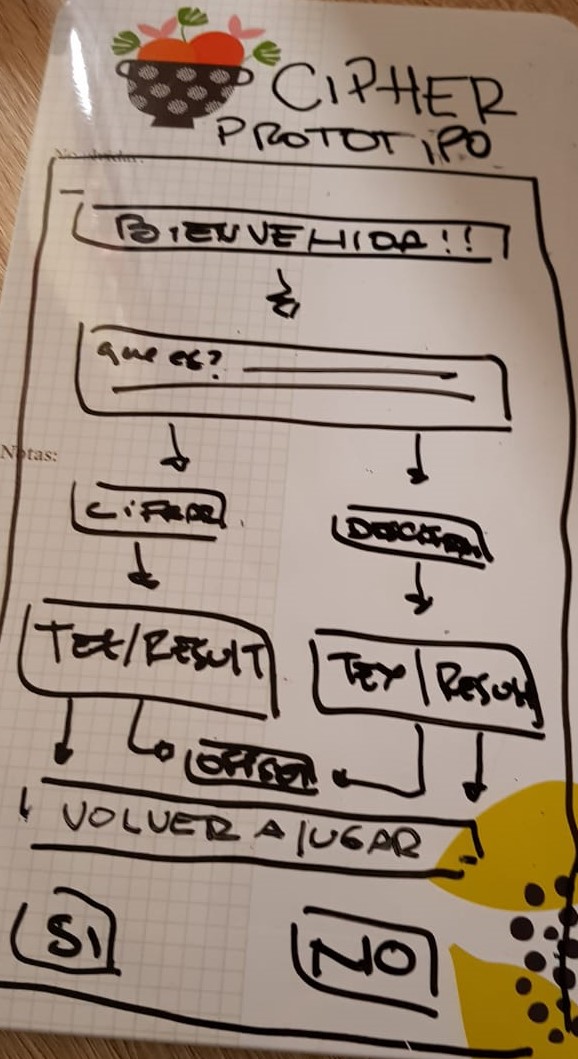 CIPHER
PROTOTIPO
BIENVENIDA!!
que es?
Notas:
CiFRAR
TEX/RESULT
TEX/RESUL
OFFSET
VOLVER A JUGAR
SI
NO